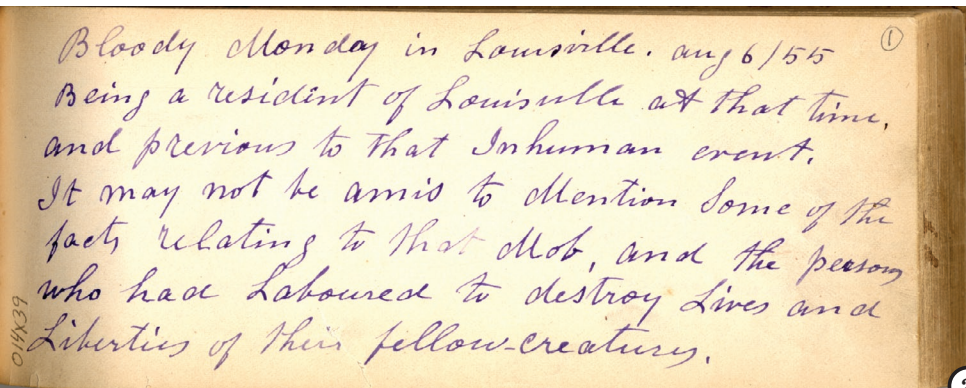 Bloody Monday in Louisville. aug 6/55
①
Being a resident of Louisville at that time,
and previous to that Inhuman event.
It may not be amis to Mention Some of the
facts relating to that Mob, and the persons
who had Laboured to destroy Lives and
Liberties of their fellow-creatures.
014x39